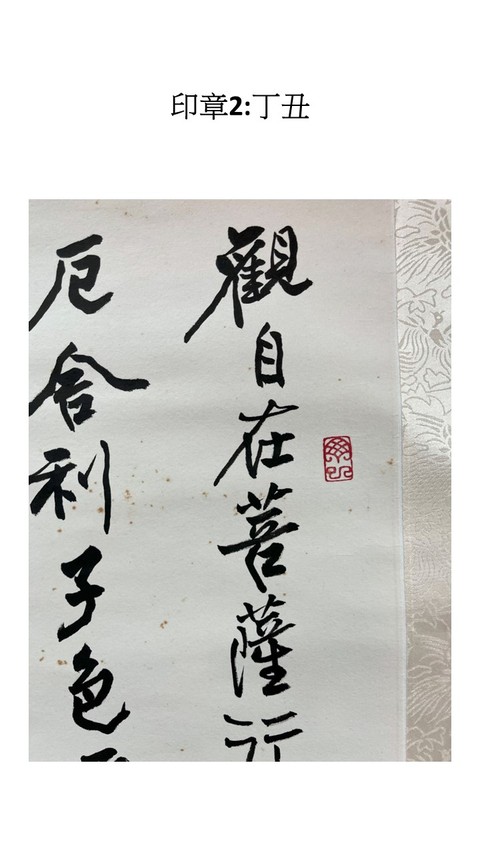 印章2:丁丑
觀自在菩薩行
厄舍利子色